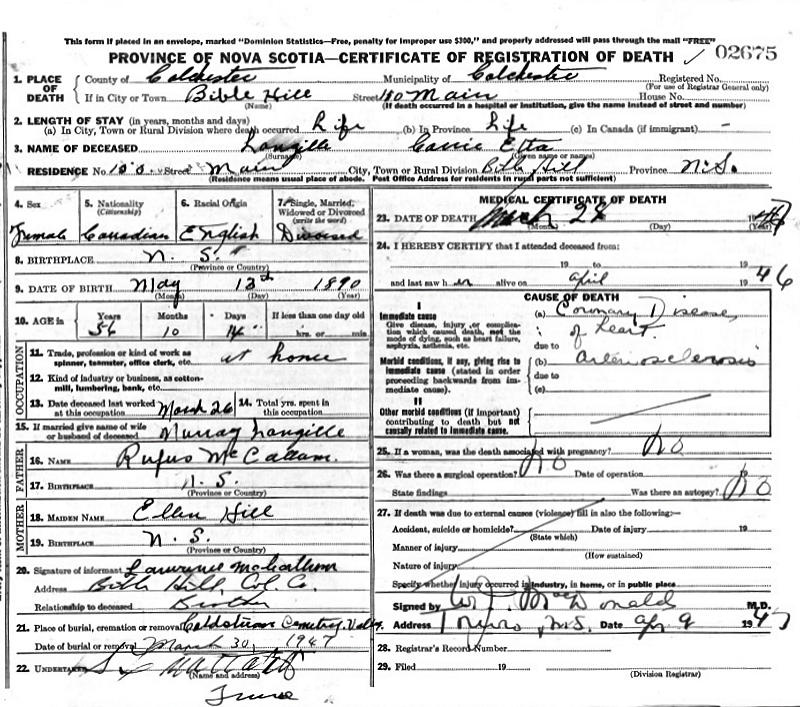 This form if placed in an envelope, marked "Dominion Statistics—Free, penalty for improper use $300," and properly addressed will pass through the mail "FREE"
PROVINCE OF NOVA SCOTIA—CERTIFICATE OF REGISTRATION OF DEATH 02675
1. PLACE OF DEATH County of Colchester Municipality of Colchester Registered No.
(For use of Registrar General only)
If in City or Town Bible Hill Street 100 Main House No.
(Name) (If death occurred in a hospital or institution, give the name instead of street and number)
2. LENGTH OF STAY (in years, months and days)
(a) In City, Town or Rural Division where death occurred Life (b) In Province Life (c) In Canada (if immigrant) —
3. NAME OF DECEASED Langille Carrie Etta
(Surname) (Given name or names)
RESIDENCE No. 100 Street Main City, Town or Rural Division Bible Hill Province N.S.
(Residence means usual place of abode. Post Office Address for residents in rural parts not sufficient)
4. Sex 5. Nationality (Citizenship) 6. Racial Origin 7. Single, Married, Widowed or Divorced (write the word)
Female Canadian English Divorced
8. BIRTHPLACE N. S.
(Province or Country)
9. DATE OF BIRTH May 13th 1890
(Month) (Day) (Year)
10. AGE in Years Months Days If less than one day old
56 10 14 hrs. or min.
OCCUPATION
11. Trade, profession or kind of work as spinner, teamster, office clerk, etc. at home
12. Kind of industry or business, as cotton-mill, lumbering, bank, etc.
13. Date deceased last worked at this occupation March 26 14. Total yrs. spent in this occupation
15. If married give name of wife or husband of deceased Murray Langille
FATHER
16. NAME Rufus McCallum
17. BIRTHPLACE N. S.
(Province or Country)
MOTHER
18. MAIDEN NAME Ellen Hill
19. BIRTHPLACE N. S.
(Province or Country)
20. Signature of informant Lawrence McCallum
Address Bible Hill, Col. Co.
Relationship to deceased Brother
21. Place of burial, cremation or removal Coldstream Cemetery Valley
Date of burial or removal March 30, 1947
22. UNDERTAKER
(Name and address)
Truro
MEDICAL CERTIFICATE OF DEATH
23. DATE OF DEATH March 28 1947
(Month) (Day) (Year)
24. I HEREBY CERTIFY that I attended deceased from:
19 to 19
and last saw her alive on April 1946
CAUSE OF DEATH
I
Immediate cause
Give disease, injury or complication which caused death, not the mode of dying, such as heart failure, asphyxia, asthenia, etc.
(a) Coronary Disease
of Heart.
due to
Morbid conditions, if any, giving rise to immediate cause (stated in order proceeding backwards from immediate cause).
(b) Arteriosclerosis
due to
(c)
II
Other morbid conditions (if important) contributing to death but not causally related to immediate cause.
25. If a woman, was the death associated with pregnancy? No
26. Was there a surgical operation? No Date of operation
State findings Was there an autopsy? No
27. If death was due to external causes (violence) fill in also the following:—
Accident, suicide or homicide? Date of injury 19
(State which)
Manner of injury
(How sustained)
Nature of injury
Specify whether injury occurred in industry, in home, or in public place
Signed by W. J. MacDonald M.D.
Address Truro, N.S. Date Apr 9 1947
28. Registrar's Record Number
29. Filed 19
(Division Registrar)